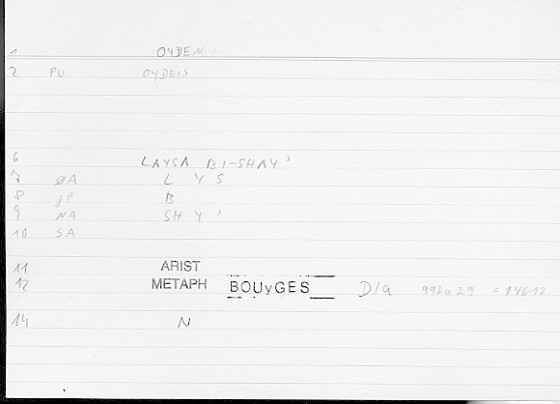 1 OYDEN
2 PU OYDEIS
6 LAYSA BI-SHAY'
7 ØA L Y S
8 JP B
9 NA SH Y '
10 SA
11 ARIST
12 METAPH BOUyGES D/a 992a29 = 146.12
14 N